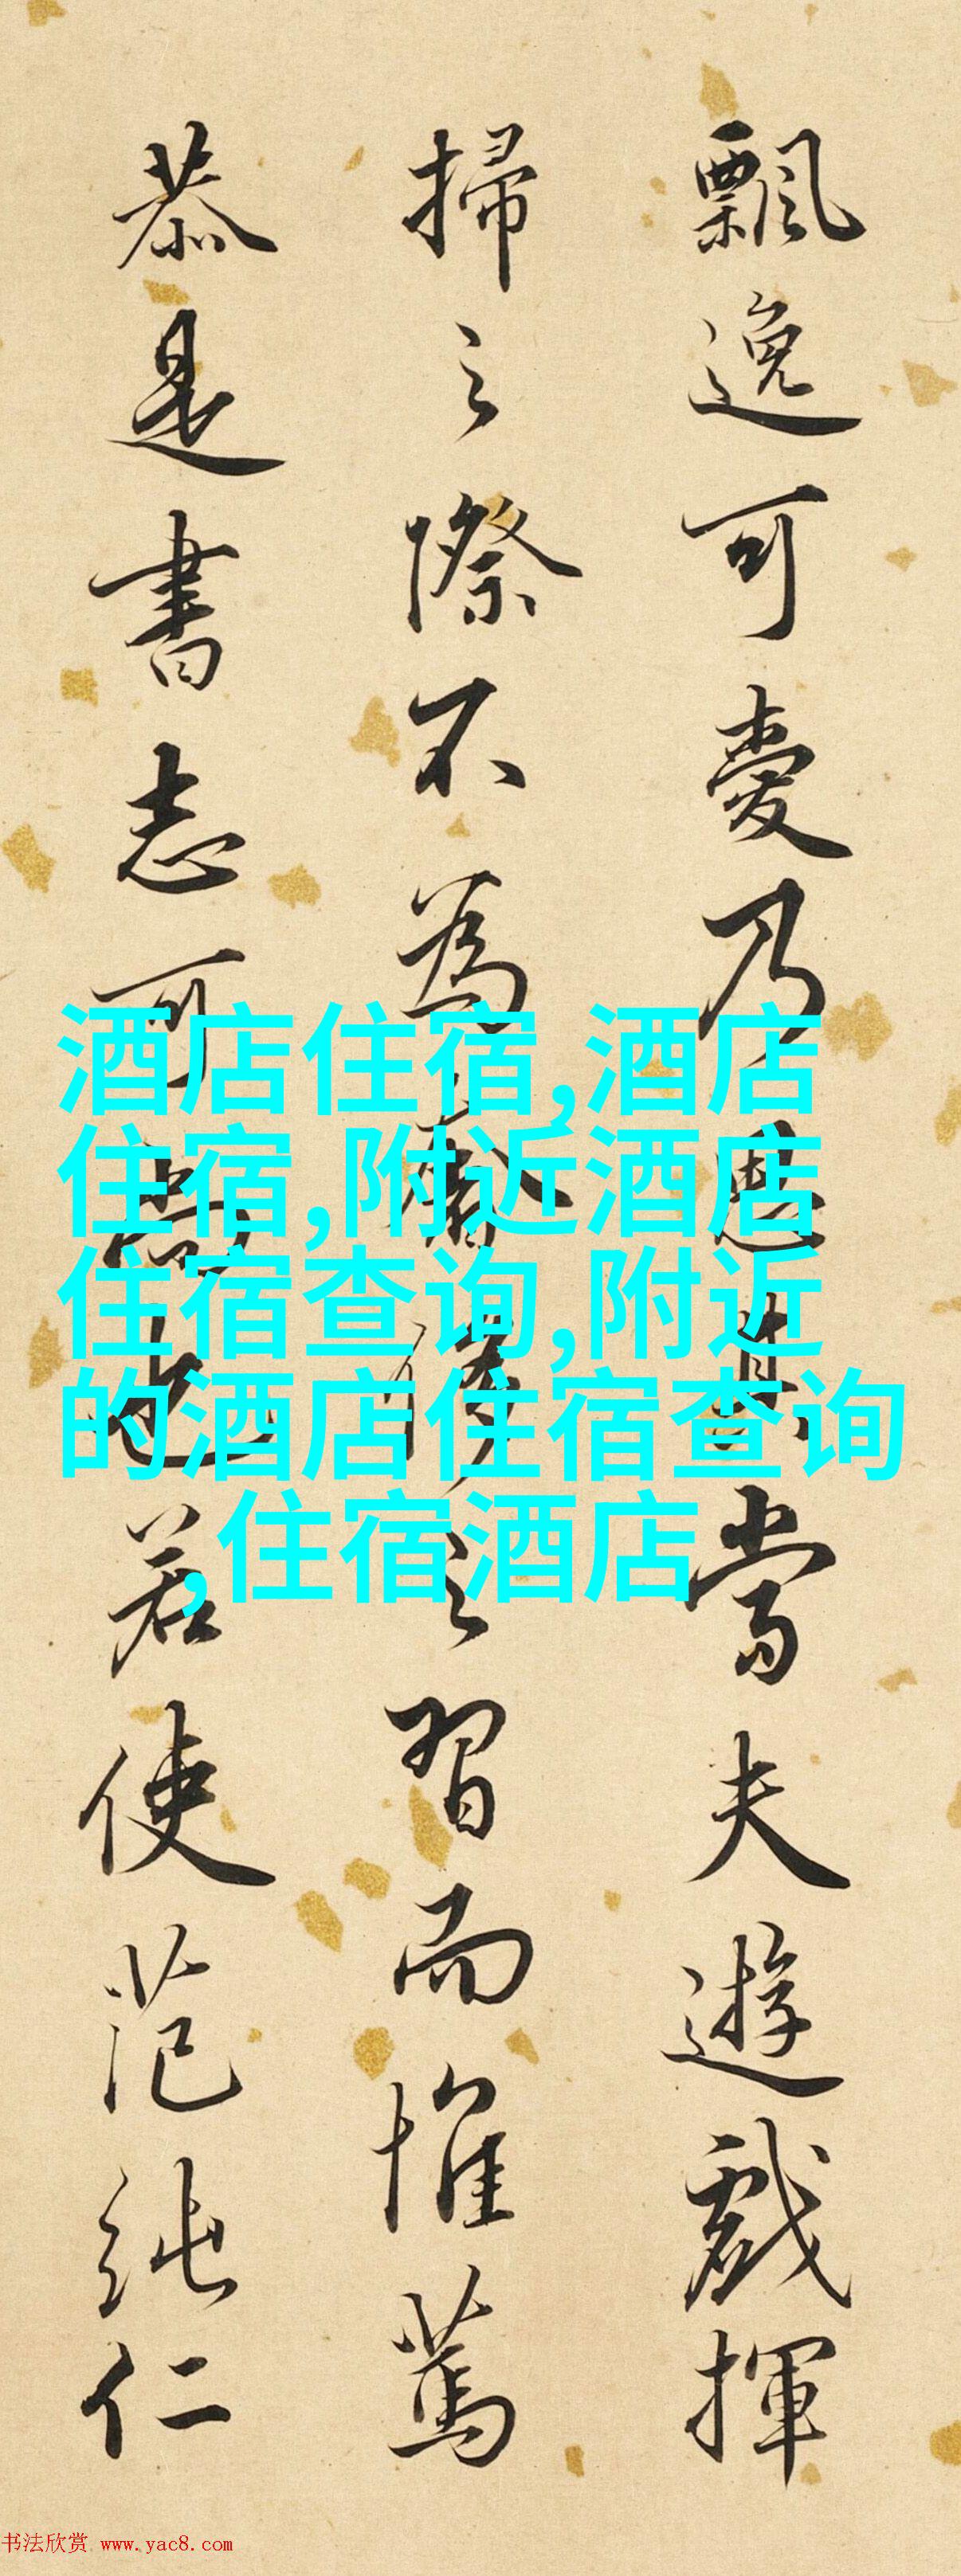 飄逸可愛乃思其當夫遊戲揮
掃之際不為之習而惟篤
恭是書志可也若使范純仁
酒店住宿,酒店
住宿,附近酒店
住宿查询,附近
的酒店住宿查询
,住宿酒店
书法欣赏 www.yac8.com